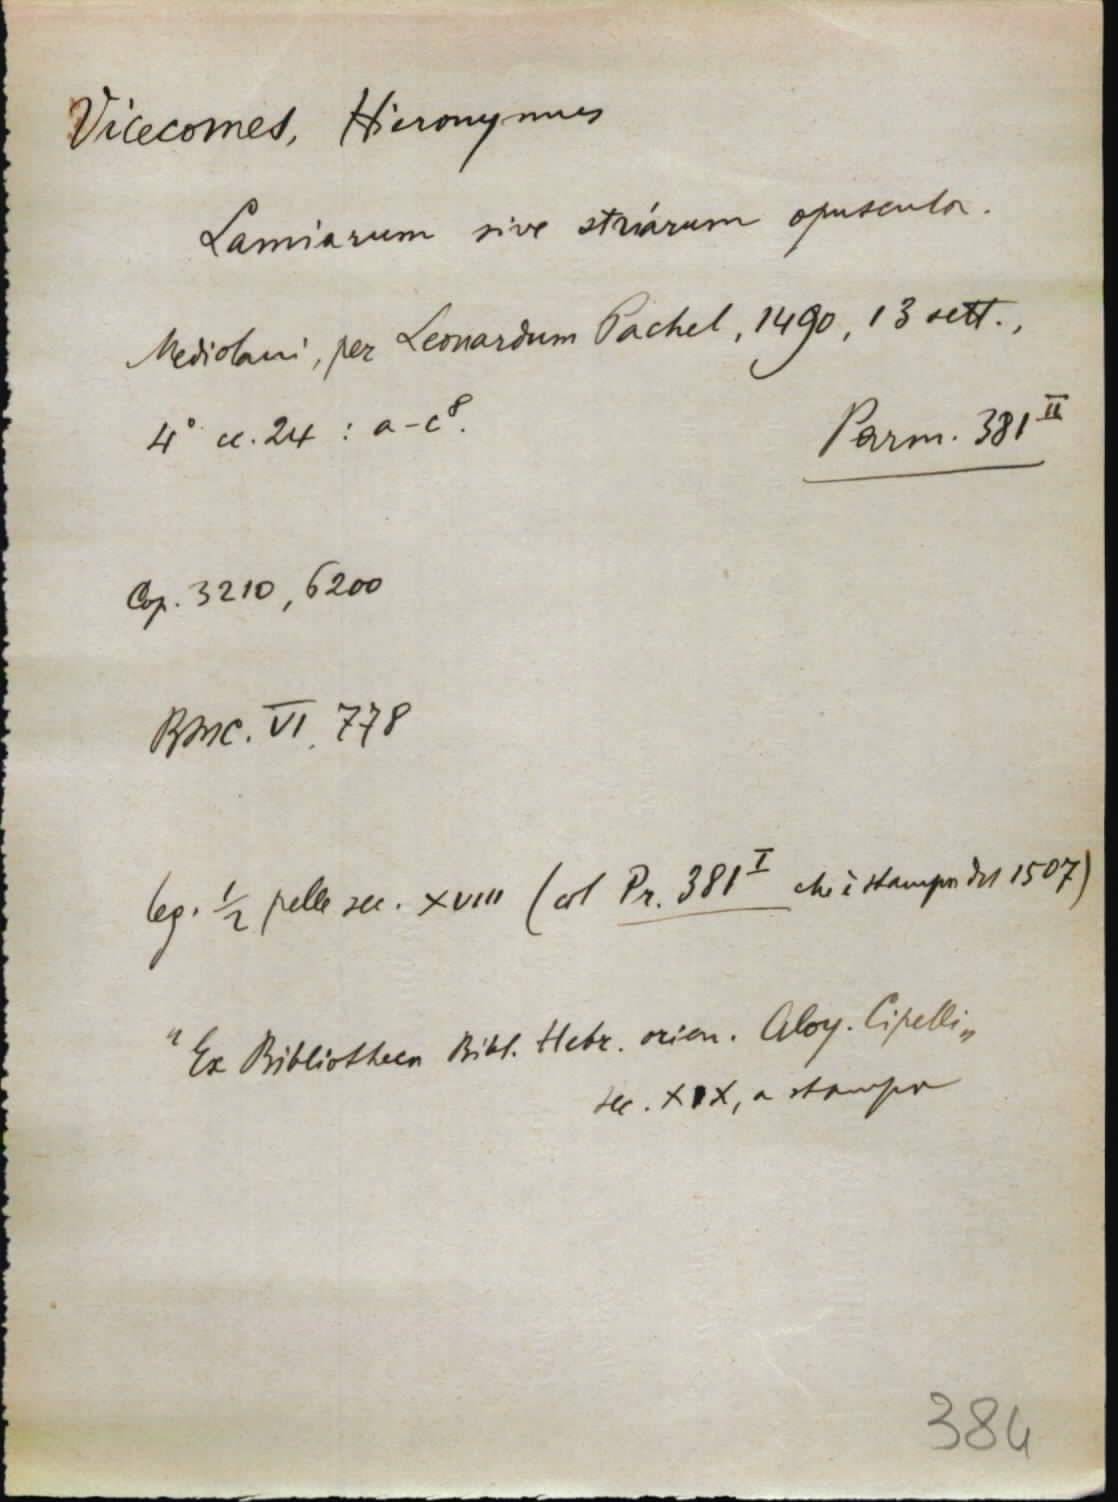 Vicecomes, Hieronymus
Lamiarum sive striarum opuscula.
Mediolani, per Leonardum Pachel, 1490, 13 sett.,
4° cc. 24 : a-c⁸.
Parm. 381 II
Cop. 3210, 6200
BMC. VI. 778
leg. 1/2 pelle sec. XVIII (col Pr. 381 I che è stampa del 1507)
"Ex Bibliotheca Bibl. Hebr. orien. Aloy. Cipelli"
sec. XIX, a stampa
384